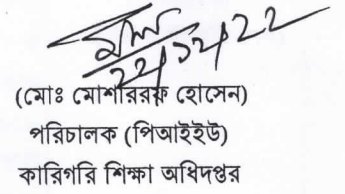 ২২/১২/২২
(মোঃ মোশাররফ হোসেন)
পরিচালক (পিআইইউ)
কারিগরি শিক্ষা অধিদপ্তর